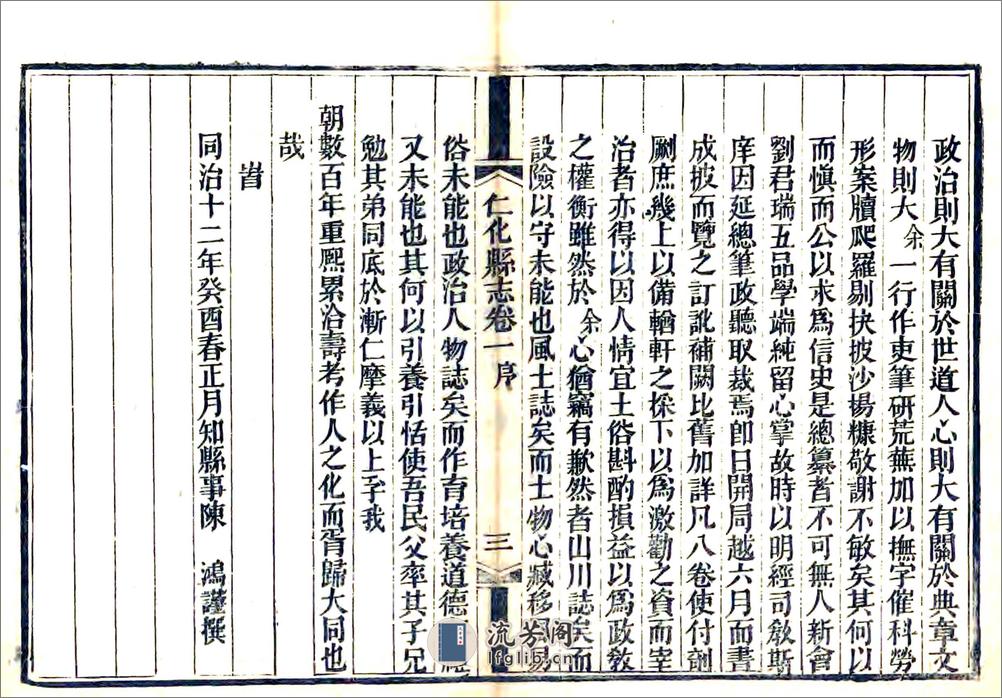 政治則大有關於世道人心則大有關於典章文
物則大余一行作吏筆研荒蕪加以撫字催科勞
形案牘爬羅剔抉披沙揚糠敬謝不敏矣其何以
而愼而公以求爲信史是總纂者不可無人新會
劉君瑞五品學端純留心掌故時以明經司啟斯
庠因延總筆政聽取裁焉卽日開局越六月而書
成披而覽之訂訛補闕比舊加詳凡八卷使付剞
劂庶幾上以備輶軒之採下以爲激勸之資而宰
治者亦得以因人情宜土俗斟酌損益以爲政敎
之權衡雖然於余心猶竊有歉然者山川誌矣而
設險以守未能也風土誌矣而土物心臧移易
仁化縣志卷一 序 三
俗未能也政治人物誌矣而作育培養道德
又未能也其何以引養引恬使吾民父率其子兄
勉其弟同底於漸仁摩義以上孚我
朝數百年重熙累洽壽考作人之化而胥歸大同也
哉
旹
同治十二年癸酉春正月知縣事陳 鴻謹撰
流芳阁
lfglib.cn